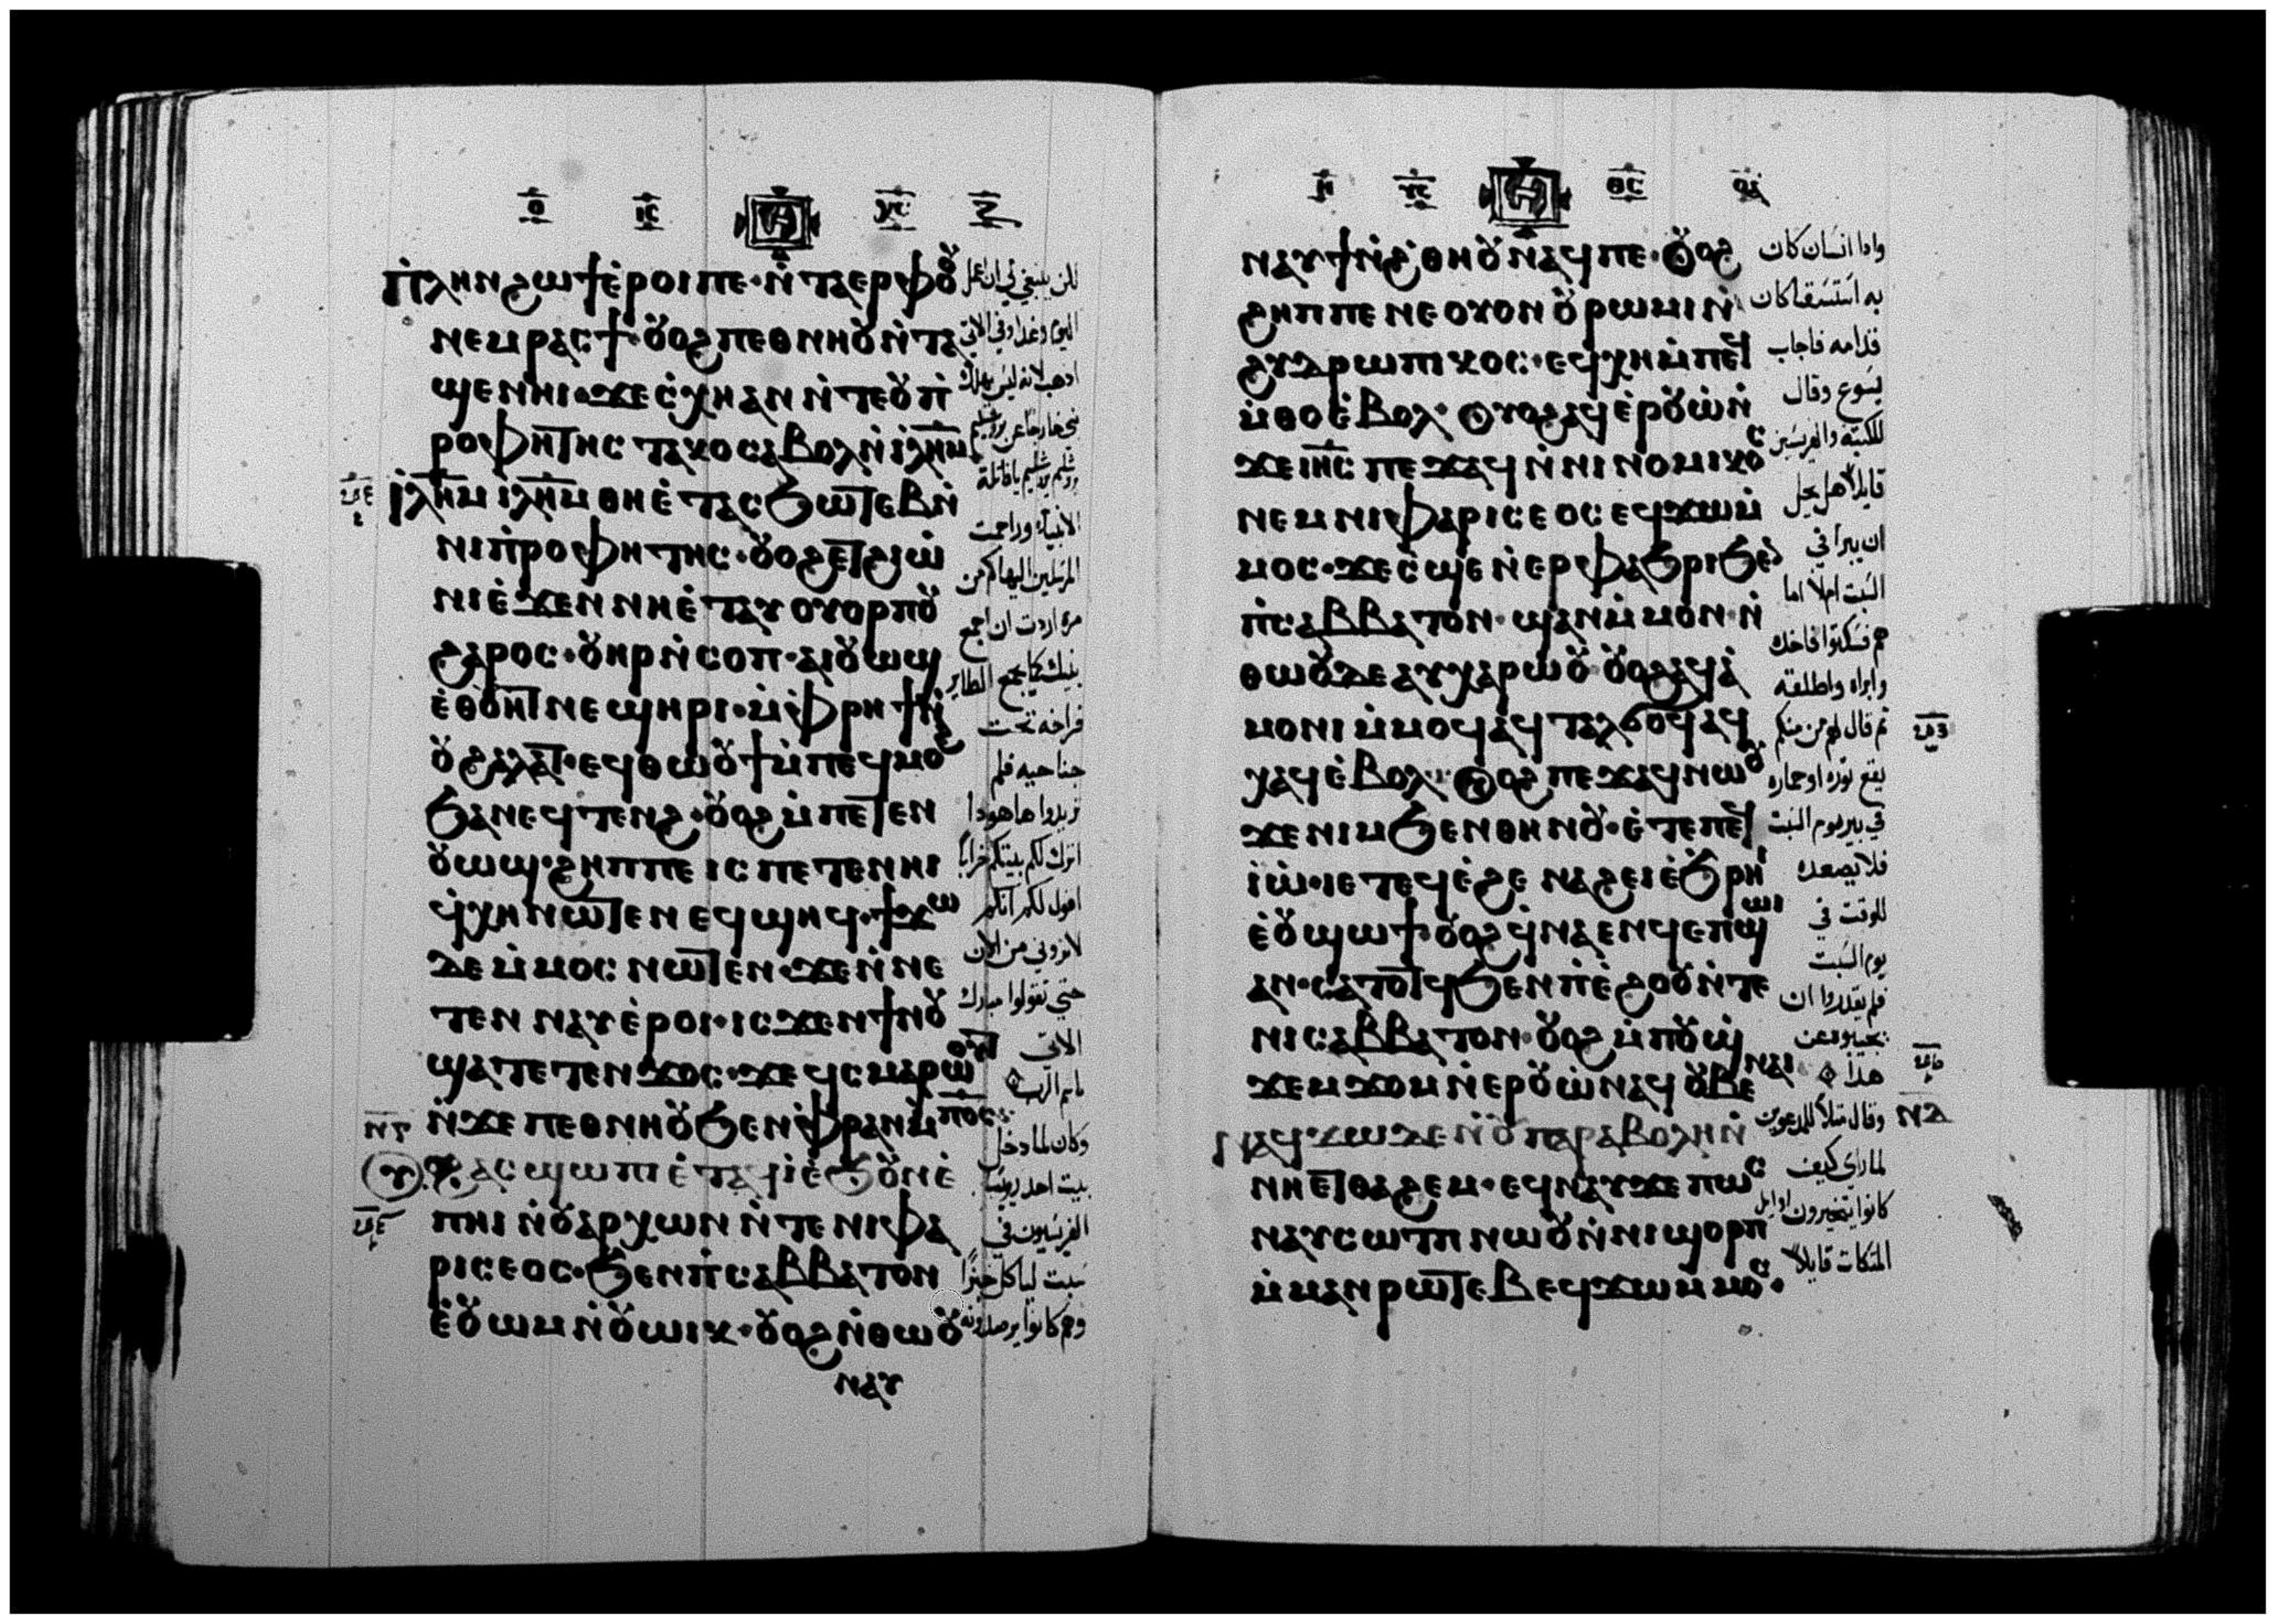 ⲡ̀ⲗⲏⲛ ϩⲱϯ ⲉ̀ⲣⲟⲓ ⲡⲉ · ⲛ̀ⲧⲁⲉⲣⲫⲟⲟⲩ
ⲛⲉⲙ ⲣⲁⲥϯ · ⲟⲩⲟϩ ⲡⲉⲑⲛⲏⲟⲩ ⲛ̀ⲧⲁ
ϣⲉ ⲛⲏⲓ · ϫⲉ ⲥ̀ⲭⲏ ⲁⲛ ⲛ̀ⲧⲉ ⲟⲩⲡ̀
ⲣⲟⲫⲏⲧⲏⲥ ⲧⲁⲕⲟ ⲥⲁⲃⲟⲗ ⲛ̀ⲓⲗⲏⲙ
ⲓⲗⲏⲙ ⲓⲗⲏⲙ ⲑⲏ ⲉ̀ⲧⲁⲥϧⲱⲧⲉⲃ ⲛ̀
ⲛⲓⲡ̀ⲣⲟⲫⲏⲧⲏⲥ · ⲟⲩⲟϩ ⲉⲧϩⲓⲱ̀
ⲛⲓ ⲉ̀ϫⲉⲛ ⲛⲏ ⲉ̀ⲧⲁⲩⲟⲩⲟⲣⲡⲟⲩ
ϩⲁⲣⲟⲥ · ⲟⲩⲏⲣ ⲛ̀ⲥⲟⲡ · ⲁⲓⲟⲩⲱϣ
ⲉ̀ⲑⲟⲩⲏⲧ ⲛⲉϣⲏⲣⲓ · ⲙ̀ⲫⲣⲏϯ ⲛ̀
ⲟⲩϩⲁⲗⲏⲧ · ⲉϥⲑⲱⲟⲩϯ ⲙ̀ⲡⲉϥⲙⲟϩ
ϧⲁ ⲛⲉϥⲧⲉⲛϩ · ⲟⲩⲟϩ ⲙ̀ⲡⲉⲧⲉⲛ
ⲟⲩⲱϣ · ϩⲏⲡⲡⲉ ⲓⲥ ⲡⲉⲧⲉⲛⲏⲓ
ϥ̀ⲭⲏ ⲛⲱⲧⲉⲛ ⲉϥϣⲏϥ · ϯϫⲱ
ⲇⲉ ⲙ̀ⲙⲟⲥ ⲛⲱⲧⲉⲛ · ϫⲉ ⲛ̀ⲛⲉ
ⲧⲉⲛⲛⲁⲩ ⲉ̀ⲣⲟⲓ · ⲓⲥϫⲉⲛ ϯⲛⲟⲩ
ϣⲁⲧⲉⲧⲉⲛϫⲟⲥ · ϫⲉ ϥ̀ⲥⲙⲁⲣⲱⲟⲩⲧ
ⲛ̀ϫⲉ ⲡⲉⲑⲛⲏⲟⲩ ϧⲉⲛ ⲫⲣⲁⲛ ⲙ̀ⲡⲟⲥ
ⲁⲥϣⲱⲡⲓ ⲉ̀ⲧⲁϥⲓ̀ ⲉ̀ϧⲟⲩⲛ ⲉ̀
ⲡⲏⲓ ⲛ̀ⲟⲩⲁⲣⲭⲱⲛ ⲛ̀ⲧⲉ ⲛⲓⲫⲁ
ⲣⲓⲥⲉⲟⲥ · ϧⲉⲛ ⲡ̀ⲥⲁⲃⲃⲁⲧⲟⲛ
ⲉ̀ⲟⲩⲱⲙ ⲛ̀ⲟⲩⲱⲓⲕ · ⲟⲩⲟϩ ⲛ̀ⲑⲱⲟⲩ
ⲛⲁⲩ
الانبياء وراجمت
المرسلين اليها كم من
مرة اردت ان اجمع
بنيك كما يجمع الطاير
فراخه تحت
جناحيه فلم
تريدوا ها هوذا
اترك لكم بيتكم خرابا
اقول لكم انكم
لا تروني من الان
حتي تقولوا مبارك
الاتي
باسم الرب
وكان لما دخل
بيت احد رويسا
الفريسيون في
سبت لياكل خبزا
وهم كانوا يرصدونه
ⲛⲁⲩϯⲛ̀ϩ̀ⲑⲏⲟⲩ ⲛⲁϥ ⲡⲉ · ⲟⲩⲟϩ
ϩⲏⲡⲡⲉ ⲛⲉ ⲟⲩⲟⲛ ⲟⲩⲣⲱⲙⲓ ⲛ̀
ϩⲩⲇⲣⲱⲡⲓⲕⲟⲥ · ⲉϥⲭⲏ ⲙ̀ⲡⲉϥ
ⲙ̀ⲑⲟ ⲉ̀ⲃⲟⲗ · ⲟⲩⲟϩ ⲁϥⲉⲣⲟⲩⲱ̀ ⲛ̀
ϫⲉ ⲓⲏⲥ ⲡⲉϫⲁϥ ⲛ̀ⲛⲓⲛⲟⲙⲓⲕⲟⲥ
ⲛⲉⲙ ⲛⲓⲫⲁⲣⲓⲥⲉⲟⲥ ⲉϥϫⲱ ⲙ̀
ⲙⲟⲥ · ϫⲉ ⲥ̀ϣⲉ ⲛ̀ⲉⲣⲫⲁϧⲣⲓ ϧⲉⲛ
ⲡ̀ⲥⲁⲃⲃⲁⲧⲟⲛ · ϣⲁⲛ ⲙ̀ⲙⲟⲛ · ⲛ̀
ⲑⲱⲟⲩ ⲇⲉ ⲁⲩⲭⲁⲣⲱⲟⲩ · ⲟⲩⲟϩ ⲁϥⲁ̀
ⲙⲟⲛⲓ ⲙ̀ⲙⲟϥ ⲁϥⲧⲁⲗϭⲟϥ ⲁϥ
ⲭⲁϥ ⲉ̀ⲃⲟⲗ · ⲟⲩⲟϩ ⲡⲉϫⲁϥ ⲛⲱⲟⲩ
ϫⲉ ⲛⲓⲙ ϧⲉⲛ ⲑⲏⲛⲟⲩ · ⲉ̀ⲧⲉ ⲡⲉϥ
ⲓ̀ⲱ̀ · ⲓⲉ ⲧⲉϥⲉ̀ϩⲉ ⲛⲁϩⲉⲓ ⲉ̀ϧⲣⲏⲓ
ⲉ̀ⲟⲩϣⲱϯ · ⲟⲩⲟϩ ϥ̀ⲛⲁⲉⲛϥ ⲉⲡϣⲱⲓ
ⲁⲛ · ⲥⲁⲧⲟⲧϥ ϧⲉⲛ ⲡⲉ̀ϩⲟⲟⲩ ⲛ̀ⲧⲉ
ⲛⲓⲥⲁⲃⲃⲁⲧⲟⲛ · ⲟⲩⲟϩ ⲙ̀ⲡⲟⲩϣ̀
ϫⲉⲙϫⲟⲙ ⲛ̀ⲉⲣⲟⲩⲱ̀ ⲛⲁϥ ⲟⲩⲃⲉ ⲛⲁⲓ
ⲛⲁϥϫⲱ ⲇⲉ ⲛ̀ⲟⲩⲡⲁⲣⲁⲃⲟⲗⲏ ⲛ̀
ⲛⲏ ⲉⲧⲑⲁϩⲉⲙ · ⲉϥⲛⲁⲩ ϫⲉ ⲡⲱⲥ
ⲛⲁⲩⲥⲱⲧⲡ ⲛⲱⲟⲩ ⲛ̀ⲛⲓϣⲟⲣⲡ
ⲙ̀ⲙⲁⲛⲣⲱⲧⲉⲃ ⲉϥϫⲱ ⲙ̀ⲙⲟⲥ ·
واذا انسان كان
به استسقا كان
قدامه فاجاب
يسوع وقال
للكتبة والفريسين
قايلا هل يحل
ان يبرا في
السبت ام لا اما
هم فسكتوا فاخذه
وابراه واطلقه
ثم قال لهم من منكم
يقع ثوره او حماره
في بير يوم السبت
فلا يصعده
للوقت في
يوم السبت
فلم يقدروا ان
يجيبوه عن
هذا
وقال مثلا للمدعوين
لما راي كيف
كانوا يتخيرون اوايل
المتكات قايلا
ⲛⲇ